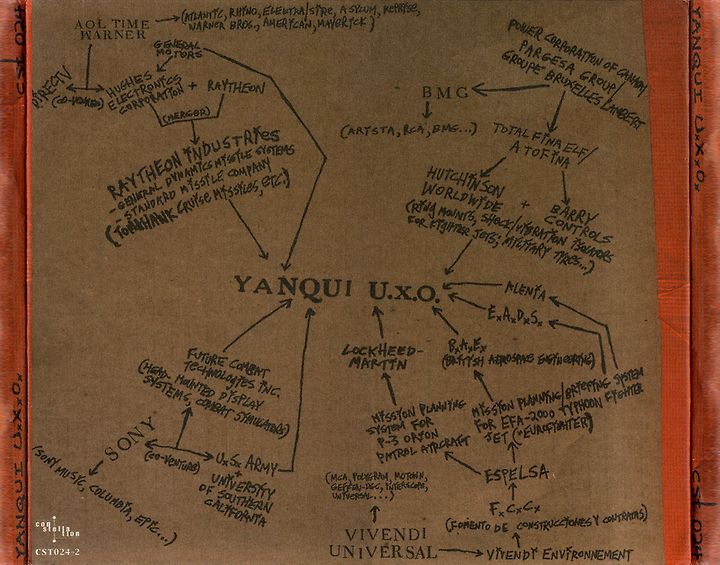 AOL TIME
WARNER
(ATLANTIC, RHINO, ELEKTRA/SIRE, ASYLUM, REPRISE,
WARNER BROS., AMERICAN, MAVERICK)
GENERAL
MOTORS
DIRECTV
(CO-VENTURE)
HUGHES
ELECTRONICS
CORPORATION
+ RAYTHEON
(MERGER)
RAYTHEON INDUSTRIES
-GENERAL DYNAMICS MISSILE SYSTEMS
-STANDARD MISSILE COMPANY
(TOMAHAWK CRUISE MISSILES, ETC.)
POWER CORPORATION OF CANADA/
PARGESA GROUP/
GROUPE BRUXELLES LAMBERT
BMG
(ARISTA, RCA, BMG...)
TOTALFINAELF/
ATOFINA
HUTCHINSON
WORLDWIDE
+ BARRY
CONTROLS
(RING MOUNTS, SHOCK/VIBRATION ISOLATORS
FOR FIGHTER JETS; MILITARY TIRES...)
YANQUI U.X.O.
ALENIA
E.A.D.S.
FUTURE COMBAT
TECHNOLOGIES INC.
(HEAD-MOUNTED DISPLAY
SYSTEMS, COMBAT SIMULATORS)
SONY
(CO-VENTURE)
U.S. ARMY
+
UNIVERSITY
OF SOUTHERN
CALIFORNIA
(SONY MUSIC, COLUMBIA, EPIC...)
LOCKHEED-
MARTIN
B.A.E.
(BRITISH AEROSPACE ENGINEERING)
MISSION PLANNING
SYSTEM FOR
P-3 ORION
PATROL AIRCRAFT
MISSION PLANNING/BRIEFING SYSTEM
FOR EFA-2000 TYPHOON FIGHTER
JET ("EUROFIGHTER")
ESPELSA
F.C.C.
(FOMENTO DE CONSTRUCCIONES Y CONTRATAS)
(MCA, POLYGRAM, MOTOWN,
GEFFEN-DGC, INTERSCOPE,
UNIVERSAL...)
VIVENDI
UNIVERSAL
VIVENDI ENVIRONNEMENT
con
stella
tion
CST024-2
YANQUI U.X.O.
YANQUI U.X.O.
CST024